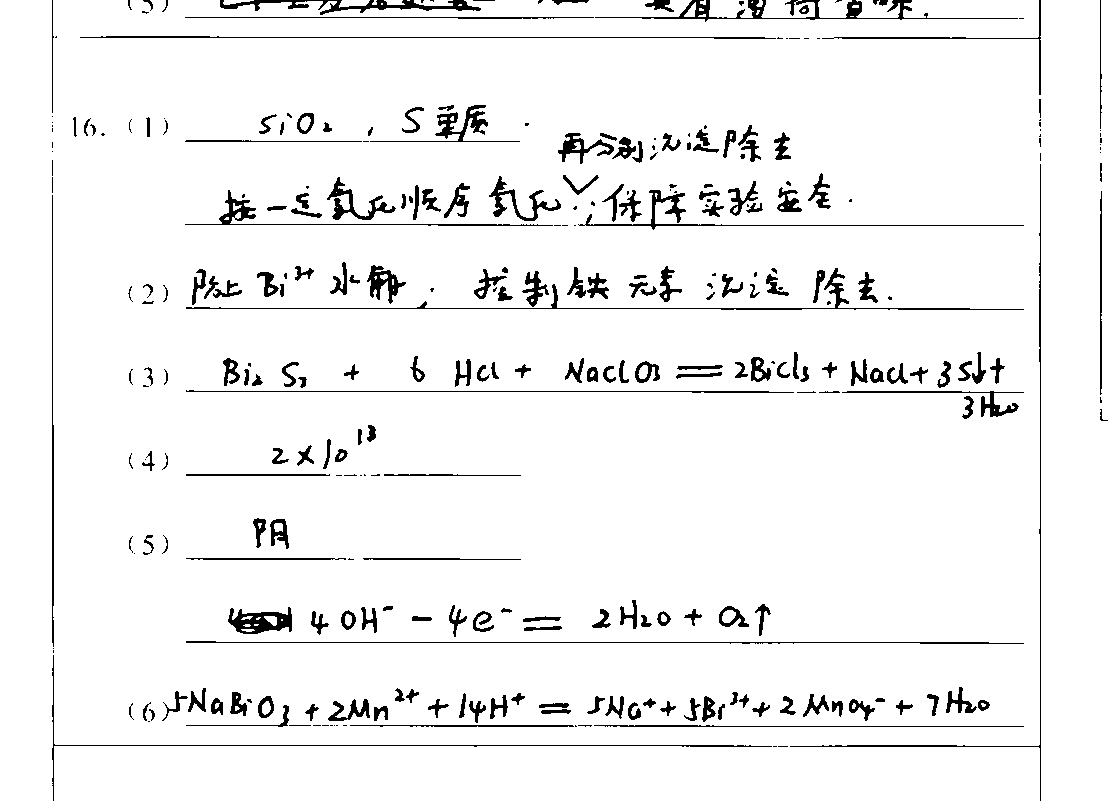 (5) 具有薄荷香味.
16. (1) SiO₂ , S单质 .
再分别沉淀除去
按一定氧化顺序氧化 ; 保障实验安全.
(2) 防止Bi³⁺水解, 控制铁元素沉淀除去.
(3) Bi₂S₃ + 6HCl + NaClO₃ == 2BiCl₃ + NaCl + 3S↓ +
3H₂O
(4) 2×10¹³
(5) 阴
4OH⁻ - 4e⁻ == 2H₂O + O₂↑
(6) 5NaBiO₃ + 2Mn²⁺ + 14H⁺ == 5Na⁺ + 5Bi³⁺ + 2MnO₄⁻ + 7H₂O